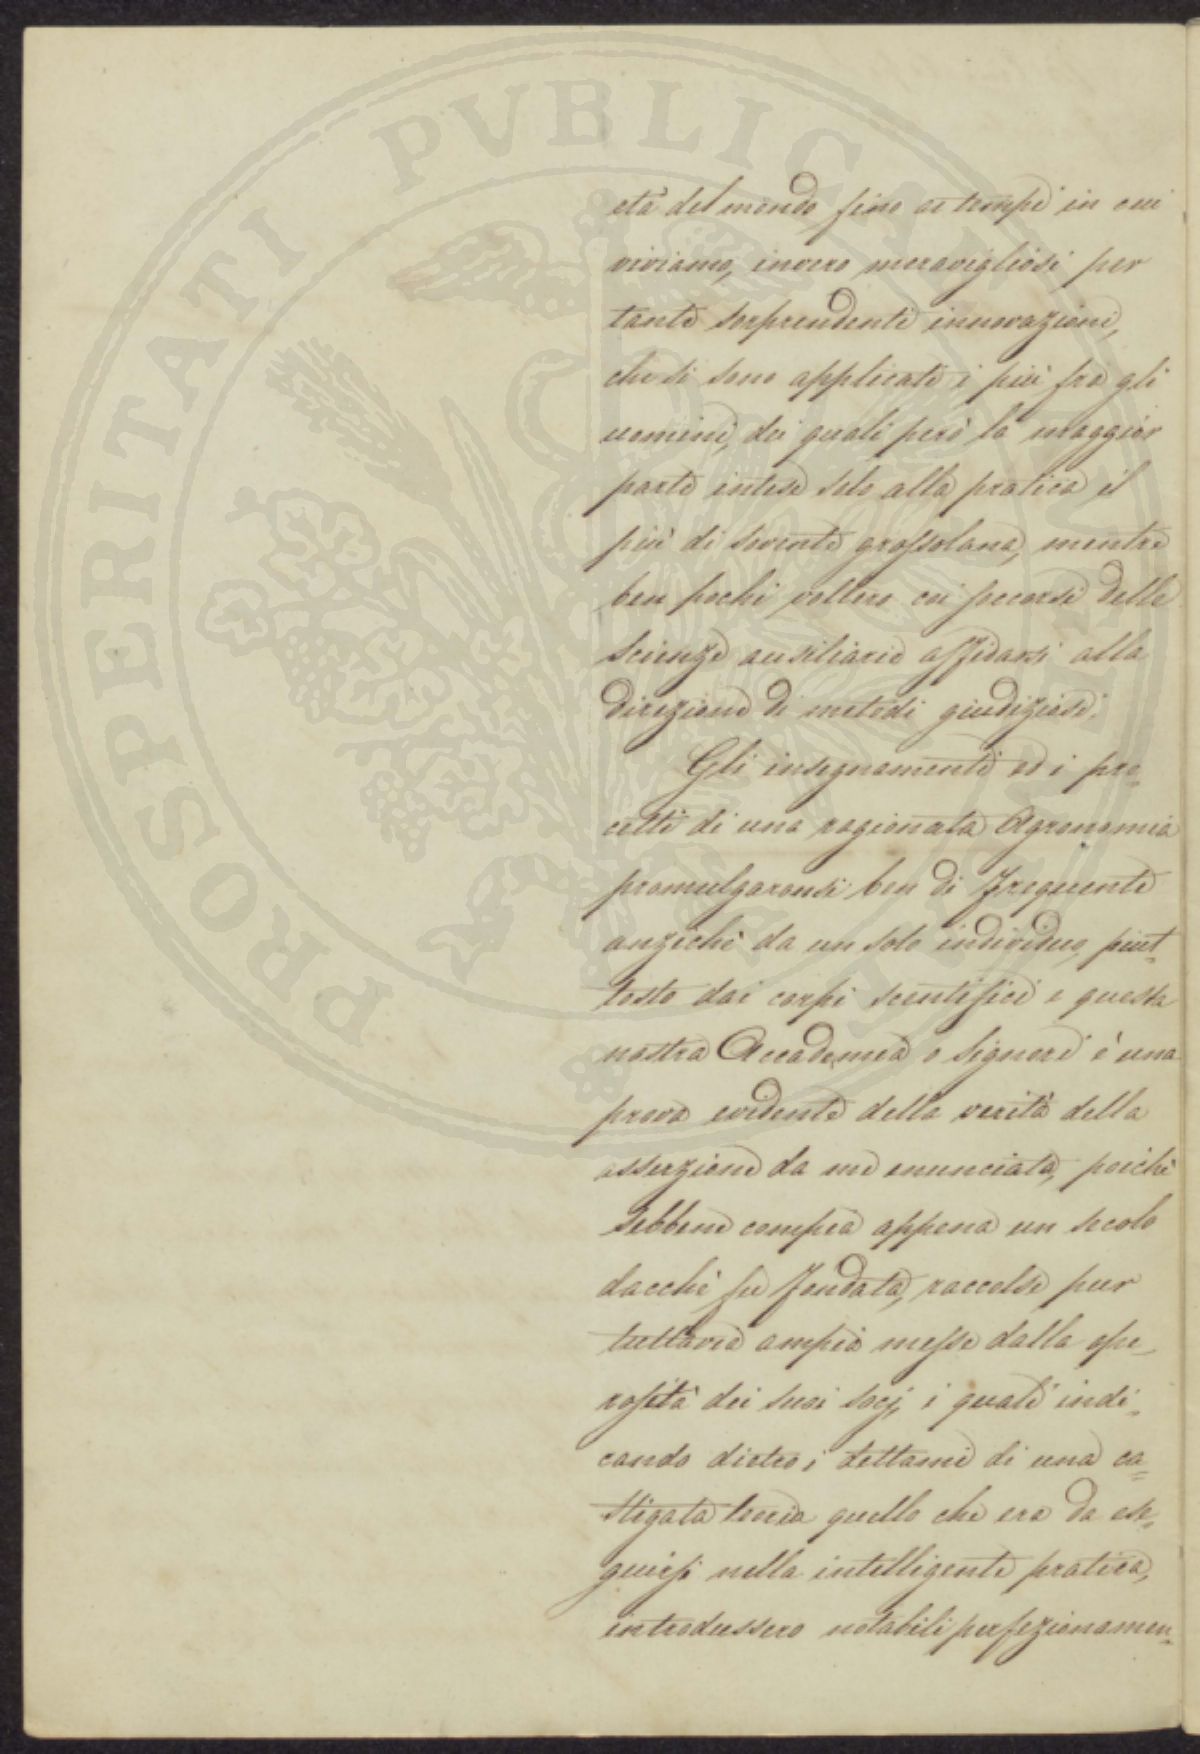 PROSPERITATI PVBLICAE
età del mondo fino ai tempi in cui
viviamo, invero meravigliosi per
tante sorprendenti innovazioni,
che si sono applicati i più fra gli
uomini, dei quali però la maggior
parte intese solo alla pratica il
più di sovente grossolana, mentre
ben pochi vollero coi soccorsi delle
scienze ausiliarie affidarsi alla
direzione di metodi giudiziosi.
Gli insegnamenti ed i pre-
cetti di una ragionata Agronomia
promulgaronsi ben di frequente
anziché da un solo individuo, piut-
tosto dai corpi scentifici e questa
nostra Accademia o Signori è una
prova evidente della verità della
asserzione da me enunciata, poiché
sebbene compia appena un secolo
dacché fu fondata, raccolse pur
tuttavia ampia messe dalla ope-
rosità dei suoi socj, i quali indi-
cando dietro i dettami di una ca=
stigata teoria quello che era da ese-
guirsi nella intelligente pratica,
introdussero notabili perfezionamen-